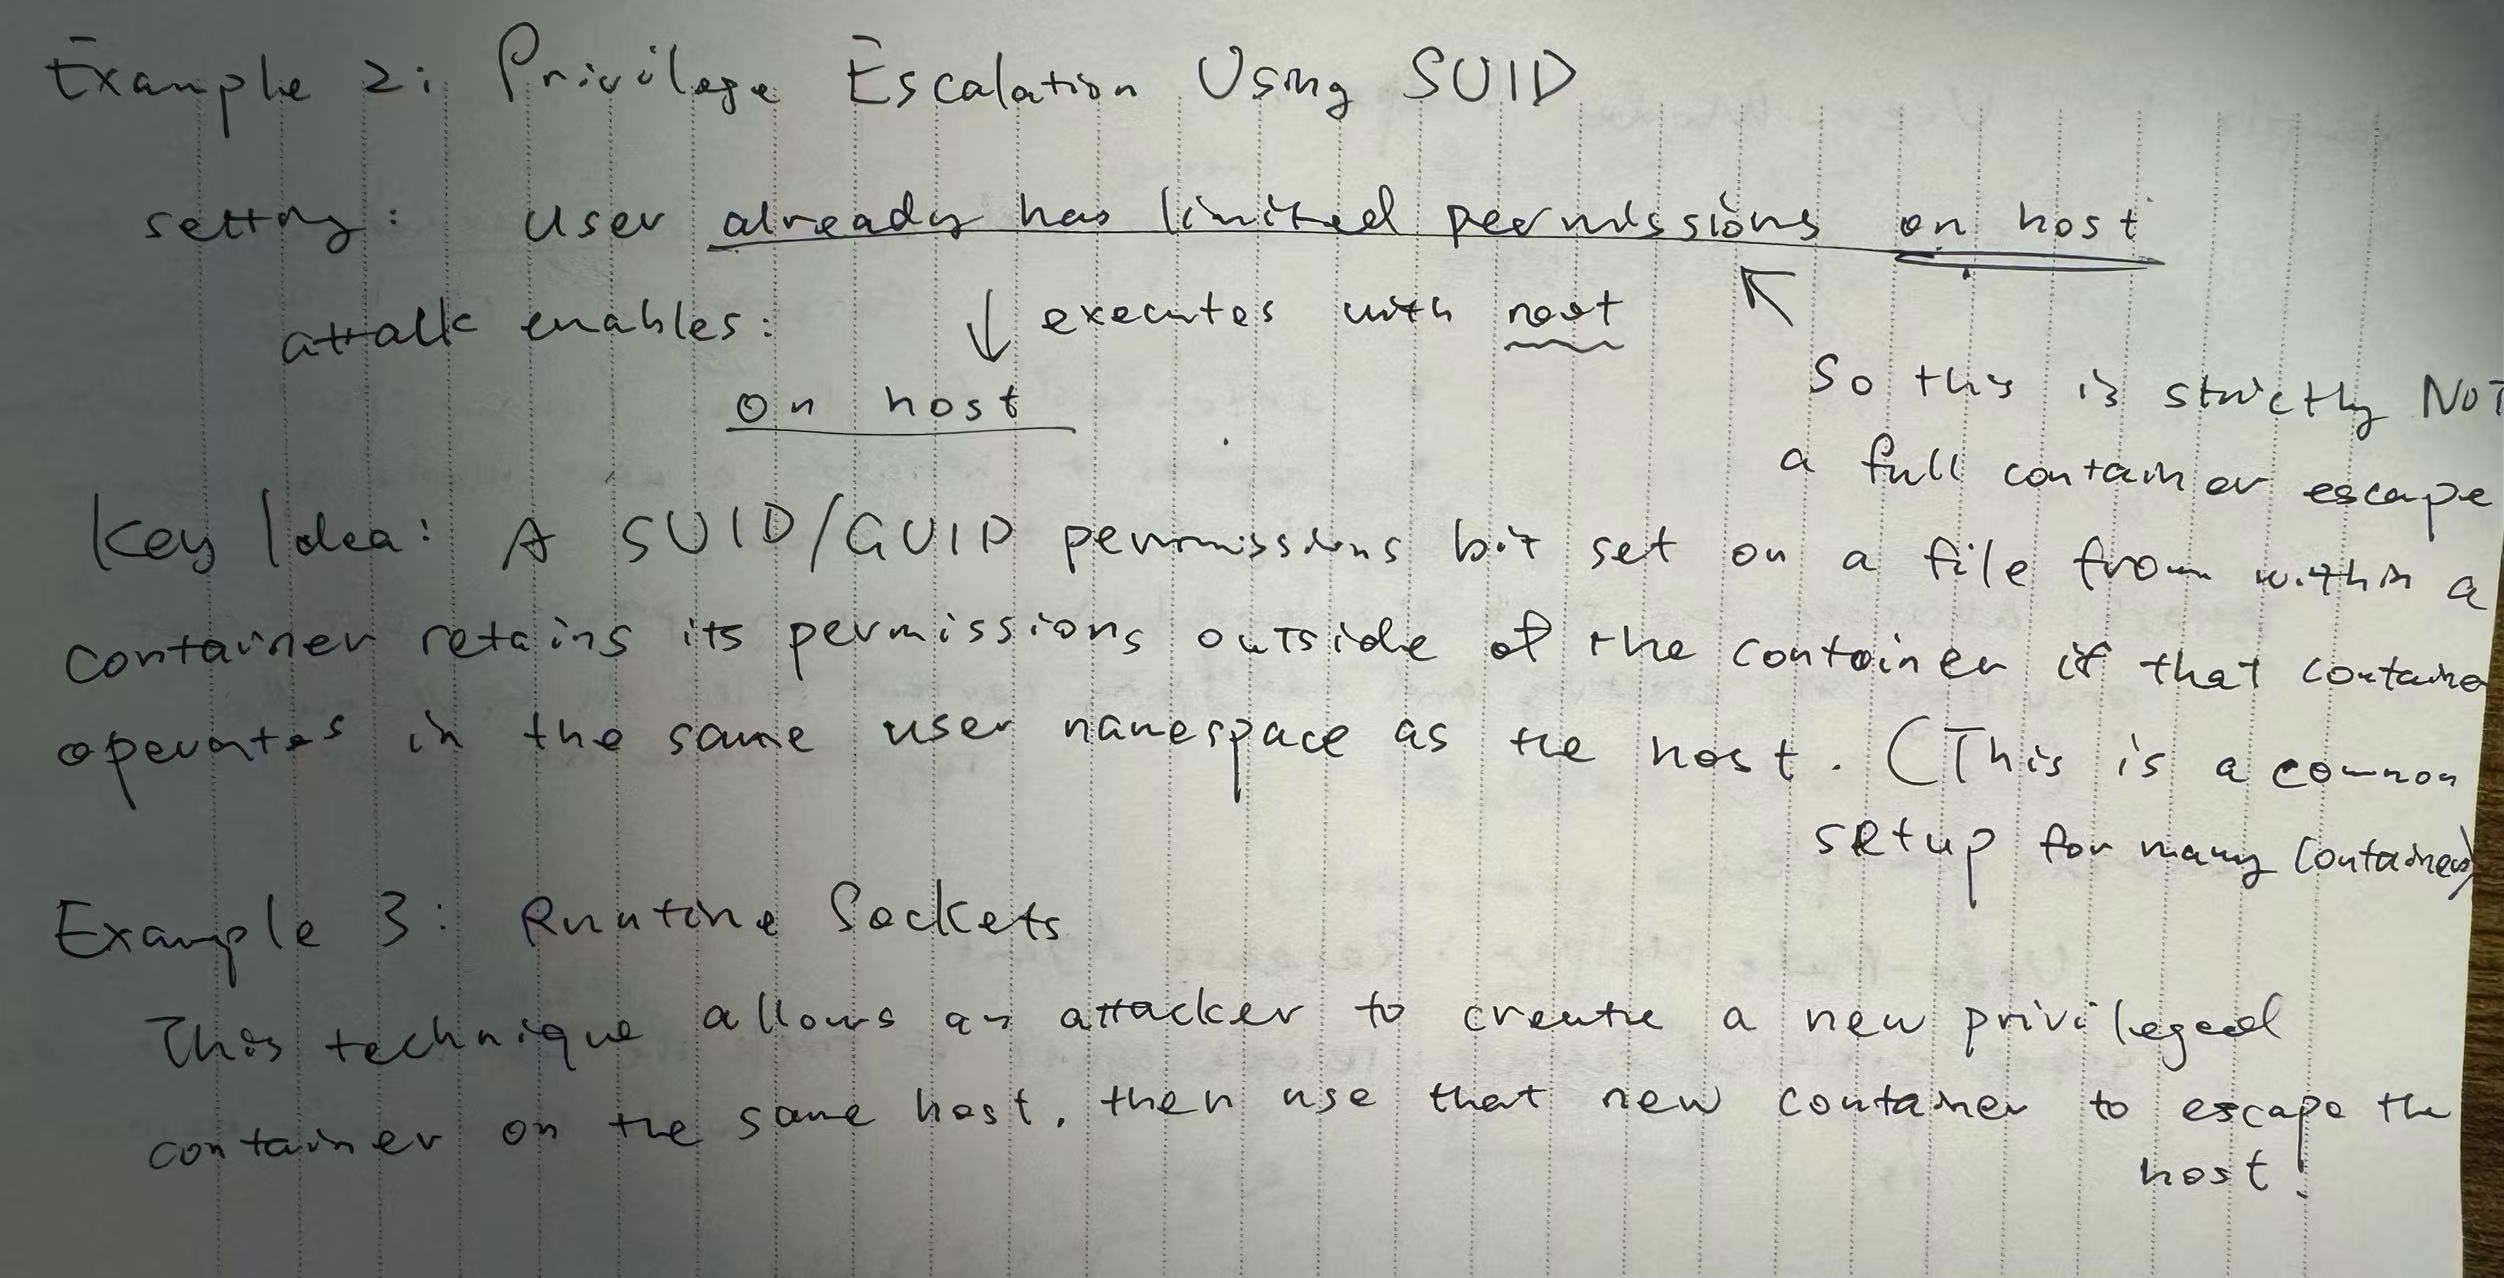 Example 2: Privilege Escalation Using SUID
setting: user already has limited permissions on host
attack enables: ↓ executes with root ↖
on host
So this is strictly NOT
a full container escape
Key Idea: A SUID/GUID permissions bit set on a file from within a
container retains its permissions outside of the container if that container
operates in the same user namespace as the host. (This is a common
setup for many containers)
Example 3: Runtime Sockets
This technique allows an attacker to create a new privileged
container on the same host, then use that new container to escape the
host.